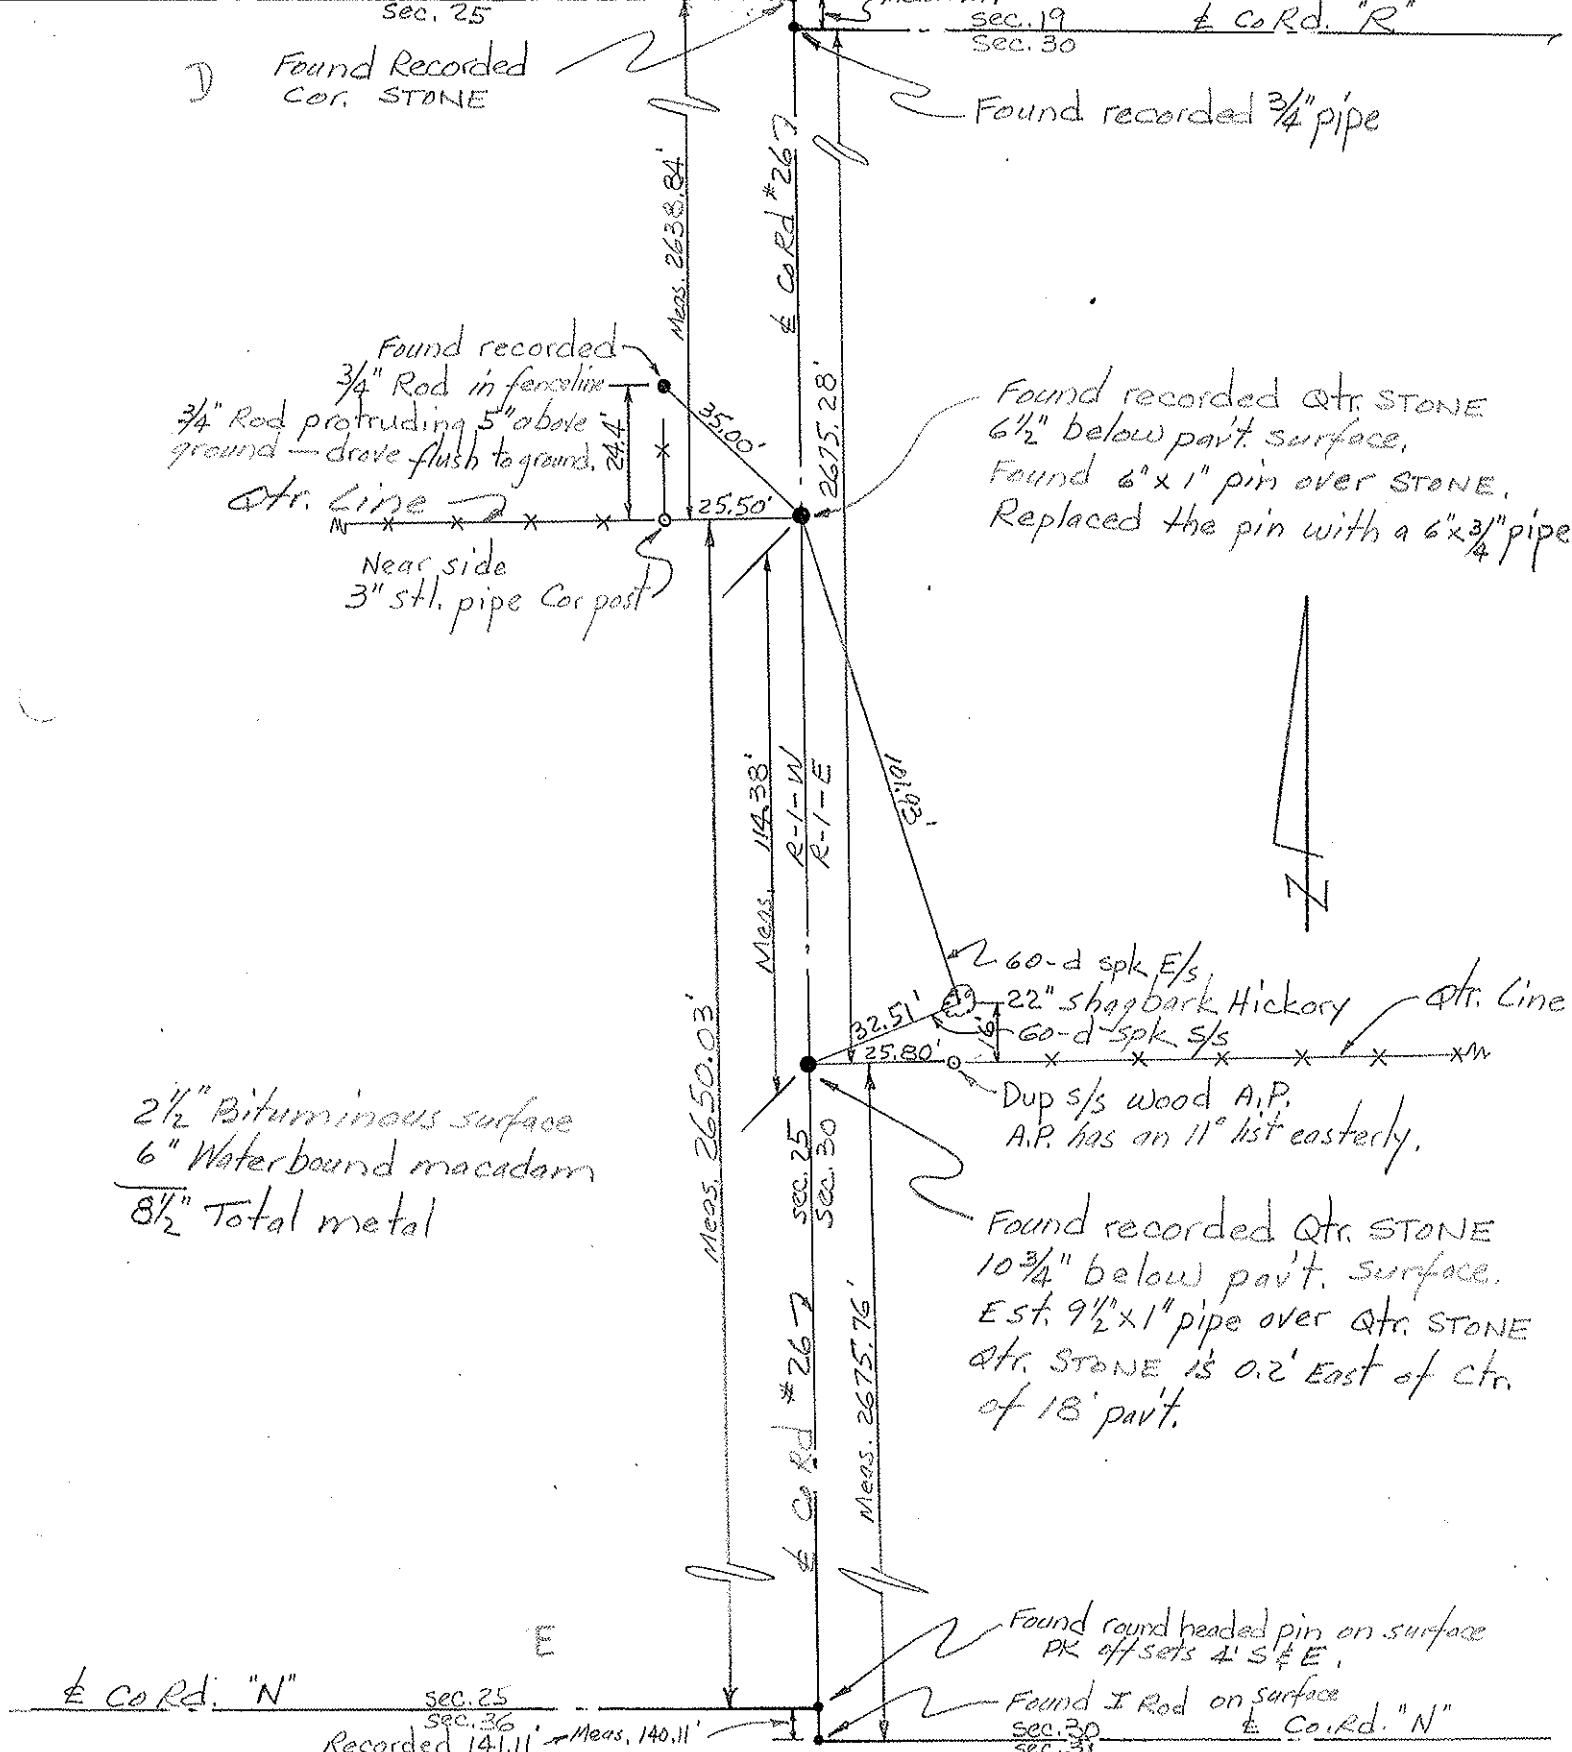 Sec. 25
Sec. 19
Sec. 30
℄ Co Rd. "R"
D
Found Recorded
Cor. STONE
Found recorded 3/4" pipe
Meas. 2638.84'
℄ Co Rd #267
2675.28'
Found recorded
3/4" Rod in fenceline
3/4" Rod protruding 5" above
ground — drove flush to ground.
24.4'
35.00'
Qtr. Line
25.50'
Near side
3" stl. pipe Cor post
Found recorded Qtr. STONE
6 1/2" below pav't. surface.
Found 6" x 1" pin over STONE.
Replaced the pin with a 6" x 3/4" pipe
Meas. 114.38'
R-1-W
R-1-E
N
60-d spk E/s
22" shagbark Hickory
60-d spk S/s
Qtr. Line
32.51'
25.80'
Dup s/s wood A.P.
A.P. has an 11° list easterly.
Meas. 2650.03'
Sec. 25
Sec. 30
2 1/2" Bituminous surface
6" Waterbound macadam
8 1/2" Total metal
Found recorded Qtr. STONE
10 3/4" below pav't. surface.
Est. 9 1/2" x 1" pipe over Qtr. STONE
Qtr. STONE is 0.2' East of Ctr.
of 18' pav't.
℄ Co Rd #267
Meas. 2675.76'
E
Found round headed pin on surface
PK offsets 4' S & E.
℄ Co Rd. "N"
Sec. 25
Sec. 36
Found I Rod on surface
Sec. 30
Sec. 31
℄ Co. Rd. "N"
Recorded 141.11'
Meas. 140.11'